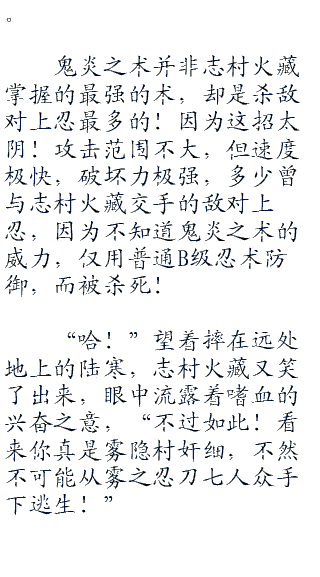 。
鬼炎之术并非志村火藏
掌握的最强的术，却是杀敌
对上忍最多的！因为这招太
阴！攻击范围不大，但速度
极快，破坏力极强，多少曾
与志村火藏交手的敌对上
忍，因为不知道鬼炎之术的
威力，仅用普通B级忍术防
御，而被杀死！
“哈！”望着摔在远处
地上的陆寒，志村火藏又笑
了出来，眼中流露着嗜血的
兴奋之意，“不过如此！看
来你真是雾隐村奸细，不然
不可能从雾之忍刀七人众手
下逃生！”